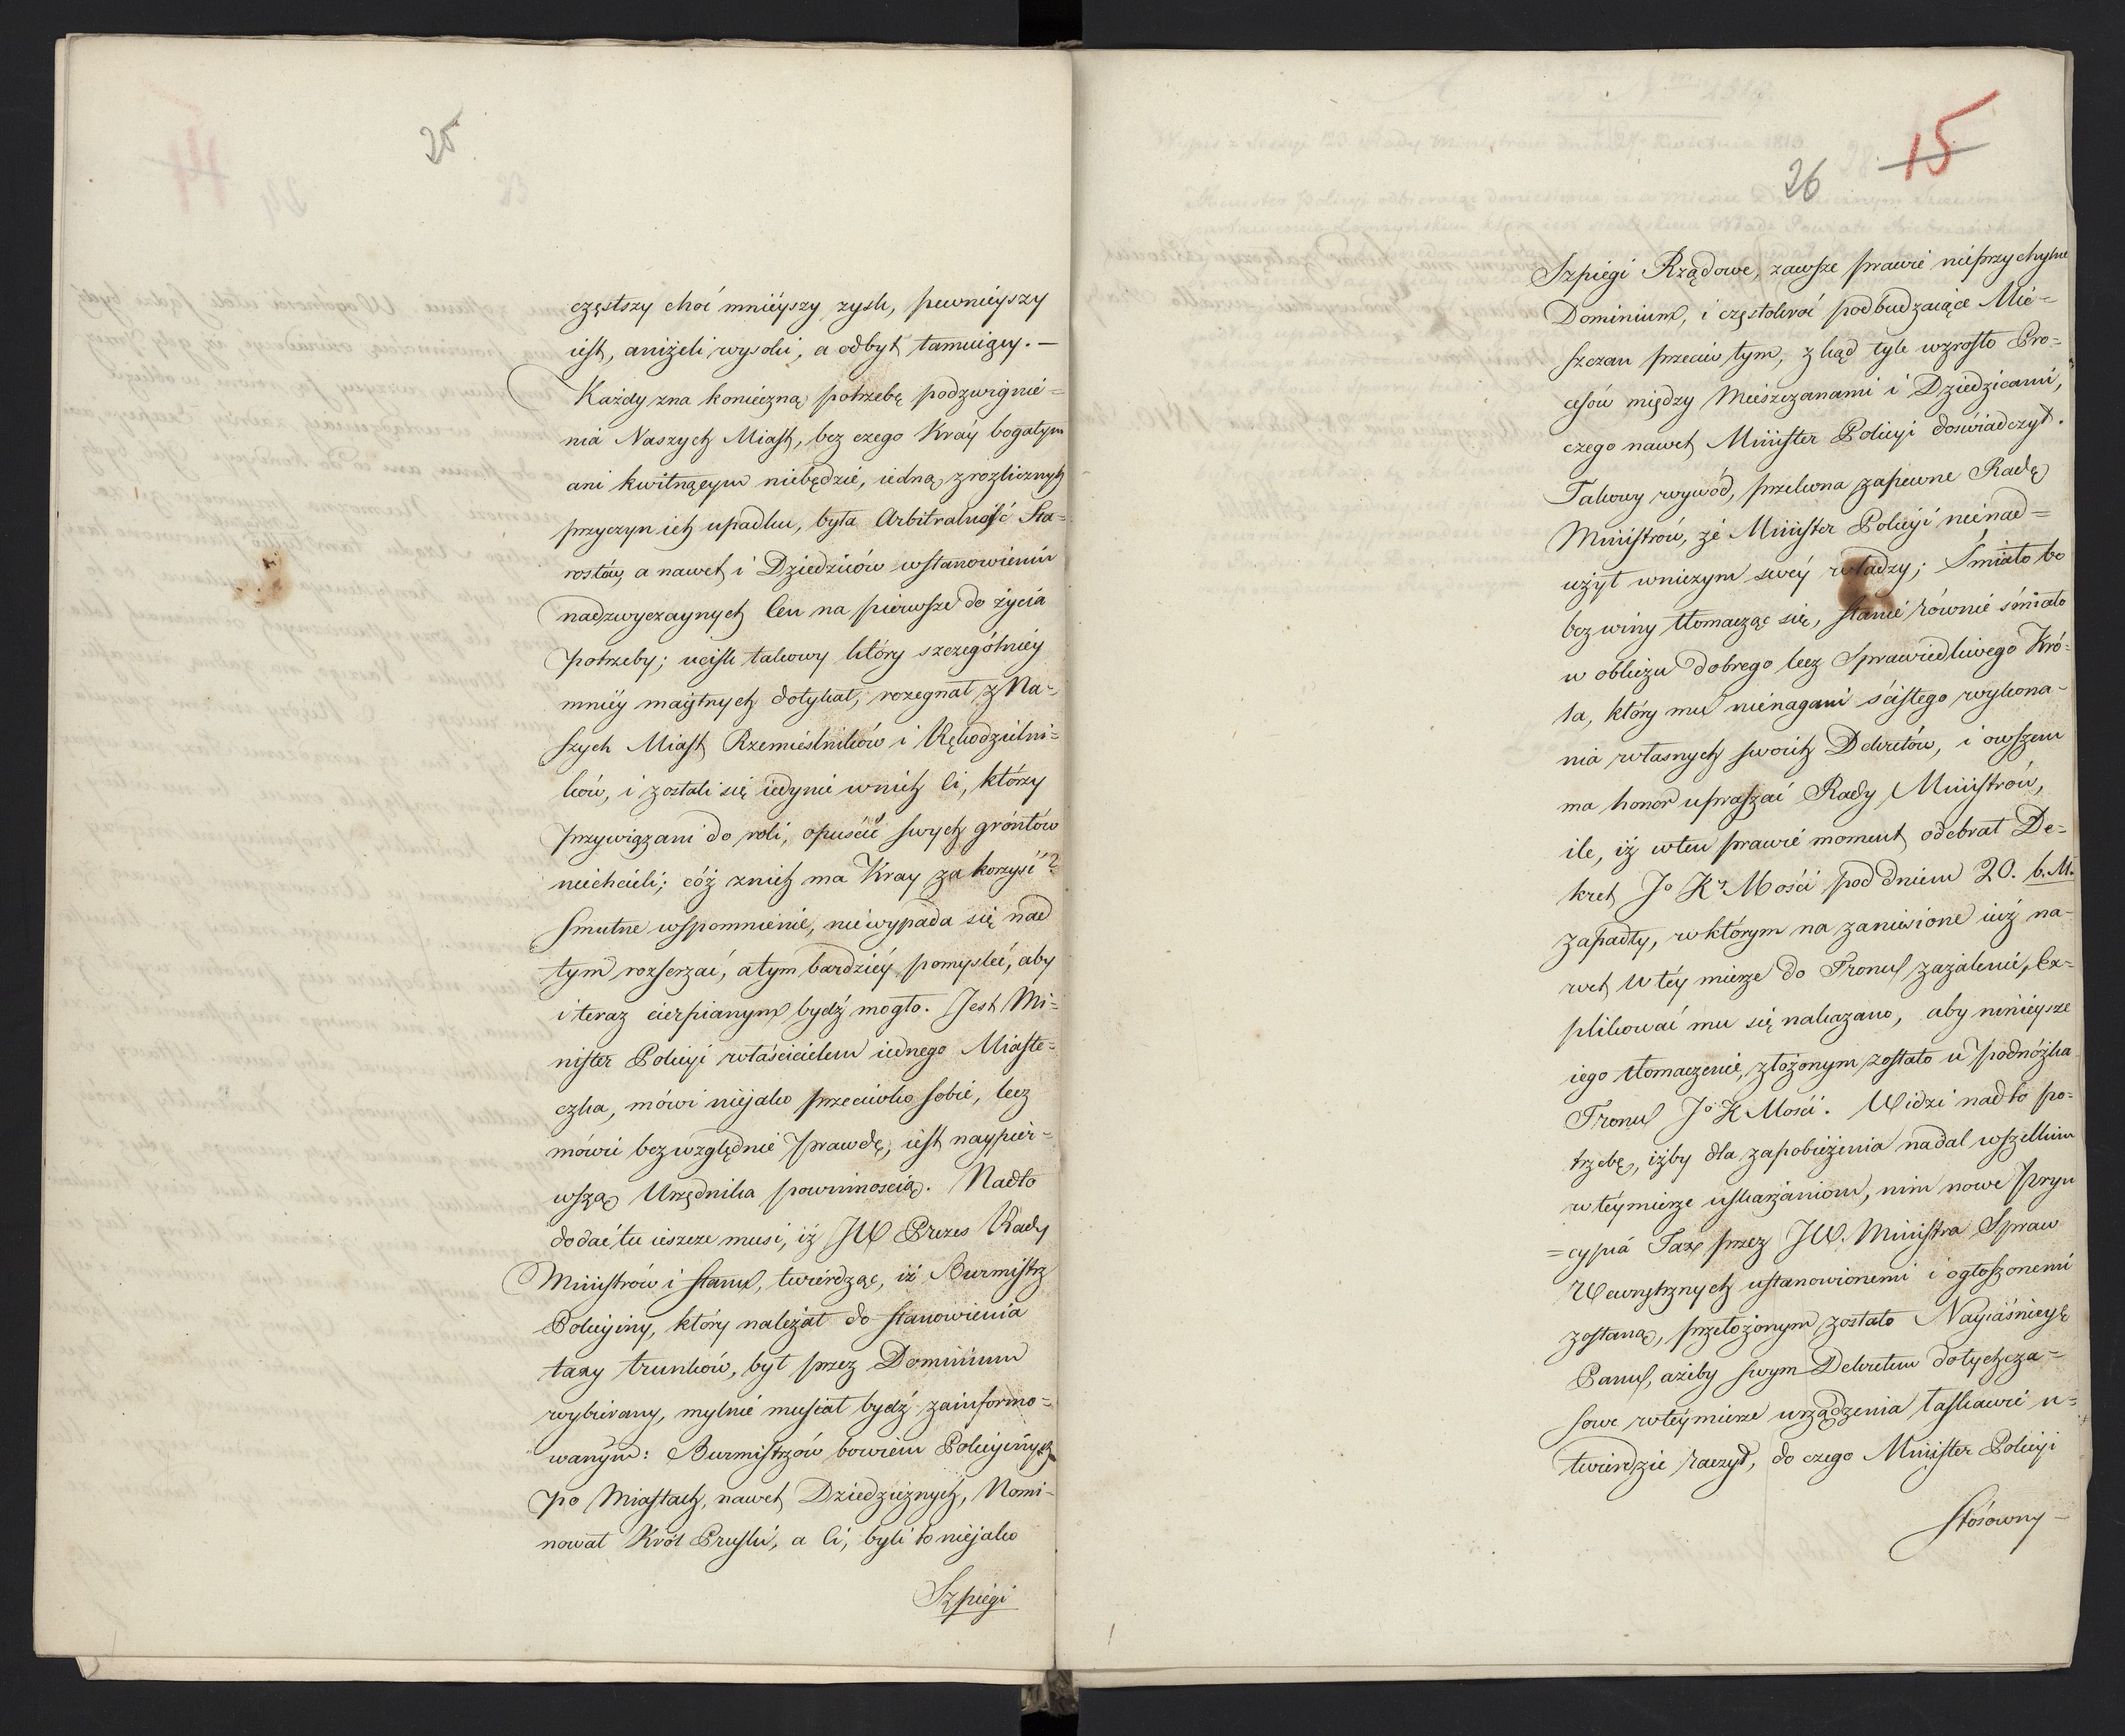 25
częstszy choć mniéyszy zysk, pewniéyszy
iest, aniżeli wysoki, a odbyt tamuiący. —
Każdy zna konieczną potrzebę podzwignie=
nia Naszych Miast, bez czego Kray bogatym
ani kwitnącym niebędzie, iedną z rozlicznych
przyczyn ich upadku, była Arbitralność Sta=
rostów, a nawet i Dziedziców w stanowieniu
nadzwyczaynych Cen na pierwsze do życia
potrzeby; ucisk takowy który szczególniéy
mniéy maiętnych dotykał, rozegnał z Na=
szych Miast Rzemieślników i Rękodzielni=
ków, i zostali się iedynie w nich Ci, którzy
przywiązani do roli, opuścić swych gróntów
niechcieli; cóż z nich ma Kray za korzyść?
Smutne wspomnienie, niewypada się nad
tym rozszerzać, a tym bardziéy pomysleć, aby
i teraz cierpianym bydź mogło. Jest Mi=
nister Policyi właścicielem iednego Miaste=
czka, mówi niejako przeciwko sobie, lecz
mówić bezwzględnie prawdę, iest naypier=
wszą Urzędnika powinnoscią. Nadto
dodać tu ieszcze musi, iż JW Prezes Rady
Ministrów i Stanu, twierdząc, iż Burmistrz
Policyiny, który należał do stanowienia
taxy trunków, był przez Dominium
wybierany, mylnie musiał bydź zainformo=
wanym: Burmistrzów bowiem Policyinych
po Miastach, nawet Dziedzicznych, Nomi=
nował Król Pruski, a Ci, byli to niejako
Szpiegi
15
26
Szpiegi Rządowe, zawsze prawie nieprzychylne
Dominium, i częstokroć podbudzaiące Mie=
szczan przeciw tym, z kąd tyle wzrosło Pro=
cesów między Mieszczanami i Dziedzicami,
czego nawet Minister Policyi doświadczył.
Takowy wywód, przekona zapewne Radę
Ministrów, że Minister Policyi nienad=
użył w niczym swéy władzy; Śmiało bo
bez winy tłomacząc się, stanie równie śmiało
w obliczu dobrego lecz Sprawiedliwego Kró=
la, który mu nienagani ścisłego wykona=
nia własnych swoich Dekretów, i owszem
ma honor upraszać Rady Ministrów,
ile, iż w ten prawie moment odebrał De=
kret Jo Kr Mości pod dniem 20. b. M.
zapadły, w którym na zaniesione iuż na=
wet w téy mierze do Tronu zażalenie, Ex=
plikować mu się nakazano, aby ninieysze
iego tłomaczenie, złożonym zostało u podnóżka
Tronu Jo K Mości. Widzi nadto po=
trzebę, iżby dla zapobieżenia nadal wszelkim
w téy mierze uskarżaniom, nim nowe pryn
=cypia Tax przez JW. Ministra Spraw
Wewnętrznych ustanowionemi i ogłoszonemi
zostaną, przełożonym zostało Nayiaśnieysz
Panu, ażeby swym Dekretem dotychcza=
sowe w téy mierze urządzenia łaskawie u=
twierdzić raczył, do czego Minister Policyi
stósowny —